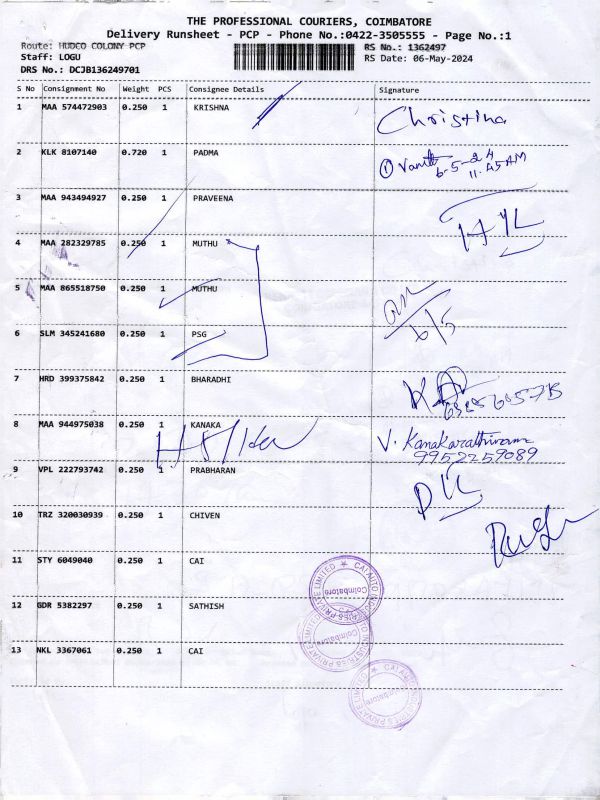 THE PROFESSIONAL COURIERS, COIMBATORE
Delivery Runsheet - PCP - Phone No.:0422-3505555 - Page No.:1
Route: HUDCO COLONY PCP
RS No.: 1362497
Staff: LOGU
RS Date: 06-May-2024
DRS No.: DCJB136249701
S No Consignment No Weight PCS Consignee Details Signature
1 MAA 574472903 0.250 1 KRISHNA Christina
2 KLK 8107140 0.720 1 PADMA
6-5-24
11.45AM
3 MAA 943494927 0.250 1 PRAVEENA
4 MAA 282329785 0.250 1 MUTHU
5 MAA 865518750 0.250 1 MUTHU
6/5
6 SLM 345241680 0.250 1 PSG
7 HRD 399375842 0.250 1 BHARADHI
8 MAA 944975038 0.250 1 KANAKA V. Kanakarathinam
9952259089
9 VPL 222793742 0.250 1 PRABHARAN
10 TRZ 320030939 0.250 1 CHIVEN
11 STY 6049040 0.250 1 CAI
CAI AUTO INDUSTRIES PRIVATE LIMITED
Coimbatore
12 GDR 5382297 0.250 1 SATHISH
CAI AUTO INDUSTRIES PRIVATE LIMITED
Coimbatore
13 NKL 3367061 0.250 1 CAI
CAI AUTO INDUSTRIES PRIVATE LIMITED
Coimbatore